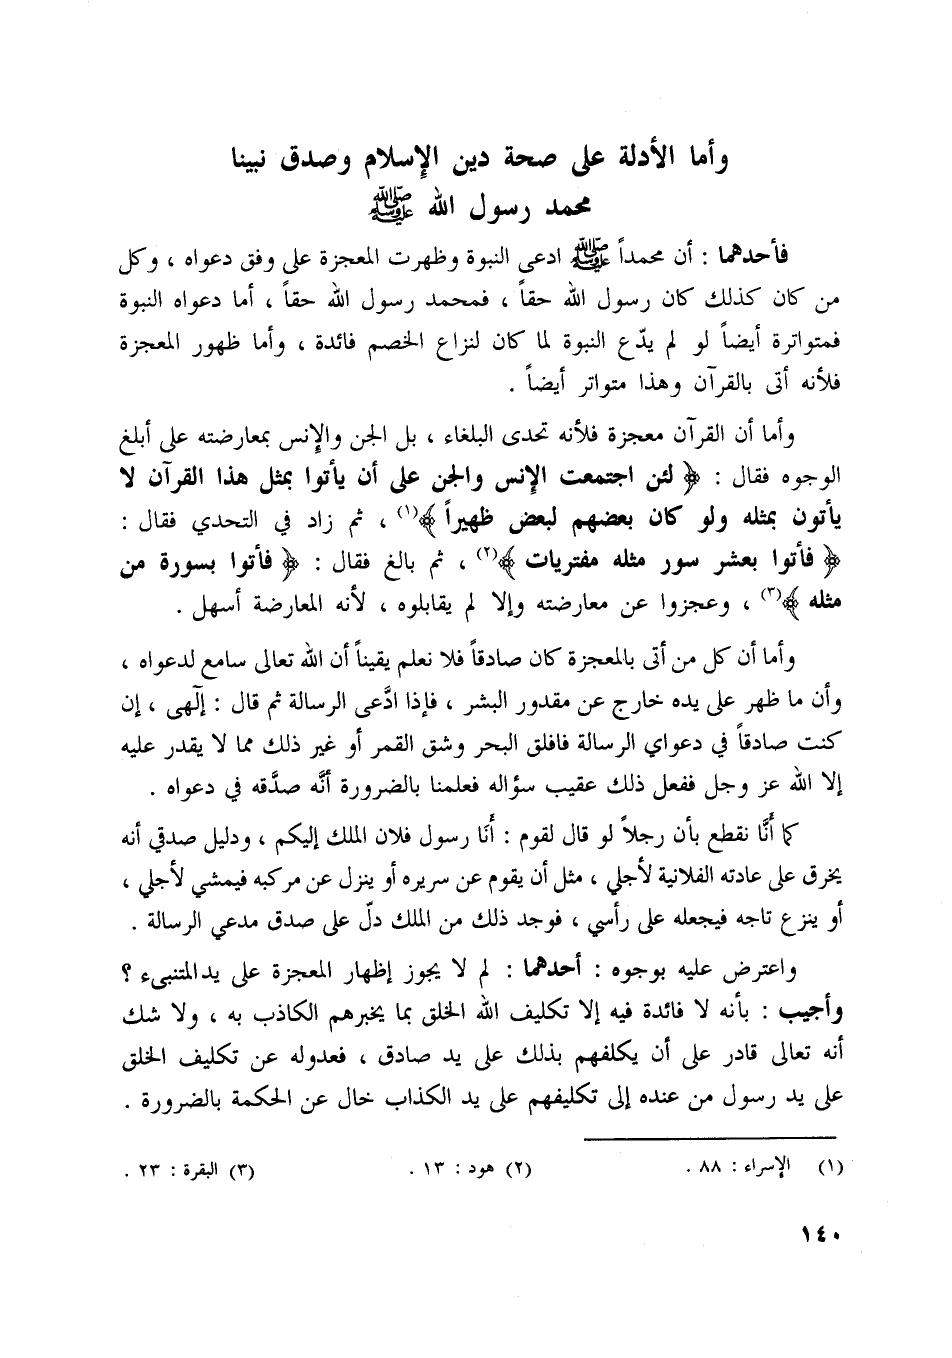 وأما الأدلة على صحة دين الإسلام وصدق نبينا
محمد رسول الله ﷺ
فأحدهما : أن محمداً ﷺ ادعى النبوة وظهرت المعجزة على وفق دعواه ، وكل
من كان كذلك كان رسول الله حقاً ، فمحمد رسول الله حقاً ، أما دعواه النبوة
فمتواترة أيضاً لو لم يدّع النبوة لما كان لنزاع الخصم فائدة ، وأما ظهور المعجزة
فلأنه أتى بالقرآن وهذا متواتر أيضاً .
وأما أن القرآن معجزة فلأنه تحدى البلغاء ، بل الجن والإنس بمعارضته على أبلغ
الوجوه فقال : ﴿ لئن اجتمعت الإنس والجن على أن يأتوا بمثل هذا القرآن لا
يأتون بمثله ولو كان بعضهم لبعض ظهيراً ﴾(١) ، ثم زاد في التحدي فقال :
﴿ فأتوا بعشر سور مثله مفتريات ﴾(٢) ، ثم بالغ فقال : ﴿ فأتوا بسورة من
مثله ﴾(٣) ، وعجزوا عن معارضته وإلا لم يقابلوه ، لأنه المعارضة أسهل .
وأما أن كل من أتى بالمعجزة كان صادقاً فلا نعلم يقيناً أن الله تعالى سامع لدعواه ،
وأن ما ظهر على يده خارج عن مقدور البشر ، فإذا ادَّعى الرسالة ثم قال : إلٓهى ، إن
كنت صادقاً في دعواي الرسالة فافلق البحر وشق القمر أو غير ذلك مما لا يقدر عليه
إلا الله عز وجل ففعل ذلك عقيب سؤاله فعلمنا بالضرورة أنَّه صدَّقه في دعواه .
كما أنَّا نقطع بأن رجلاً لو قال لقوم : أنَا رسول فلان الملك إليكم ، ودليل صدقي أنه
يخرق على عادته الفلانية لأجلي ، مثل أن يقوم عن سريره أو ينزل عن مركبه فيمشي لأجلي ،
أو ينزع تاجه فيجعله على رأسي ، فوجد ذلك من الملك دلّ على صدق مدعي الرسالة .
واعترض عليه بوجوه : أحدهما : لم لا يجوز إظهار المعجزة على يد المتنبىء ؟
وأجيب : بأنه لا فائدة فيه إلا تكليف الله الخلق بما يخبرهم الكاذب به ، ولا شك
أنه تعالى قادر على أن يكلفهم بذلك على يد صادق ، فعدوله عن تكليف الخلق
على يد رسول من عنده إلى تكليفهم على يد الكذاب خال عن الحكمة بالضرورة .
(١) الإسراء : ٨٨ . (٢) هود : ١٣ . (٣) البقرة : ٢٣ .
١٤٠